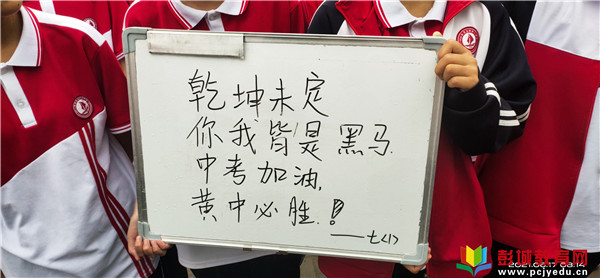 乾坤未定
你我皆是黑马.
中考加油,
黄中必胜.!
——七<1>
彭城教育网
www.pcjyedu.cn